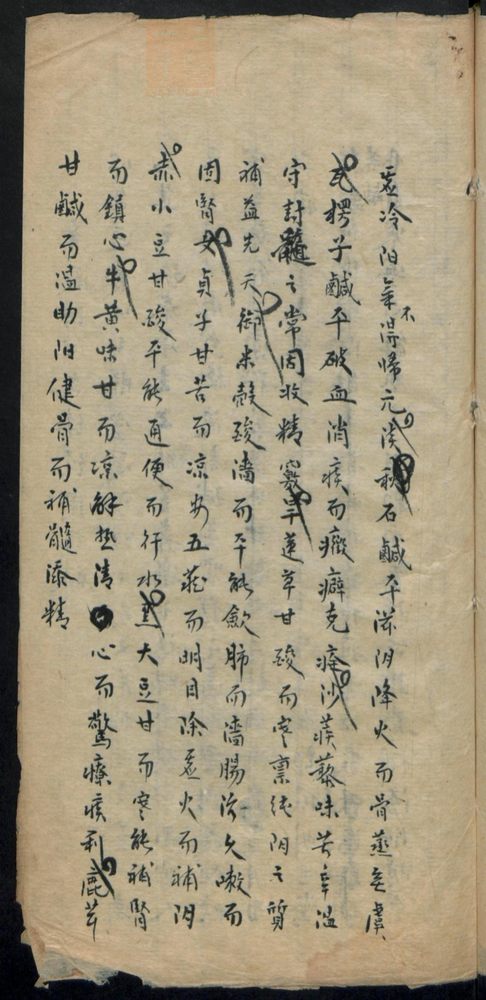 虛冷阳氣不得帰元淡秋石鹹平滋阴降火而骨蒸無虞
瓦楞子鹹平破血消痰而癥癖克瘥沙蒺藜味苦辛温
守封髓之常固收精竅旱莲草甘酸而寒禀純阴之質
補益先天御米殼酸濇而平能歛肺而濇腸治久嗽而
固腎女貞子甘苦而凉安五脏而明目除虛火而補阴
赤小豆甘酸平能通便而行水黑大豆甘而寒能補腎
而鎮心牛黄味甘而凉解热清心而驚療痰利鹿茸
甘鹹而温助阳健骨而補髓添精